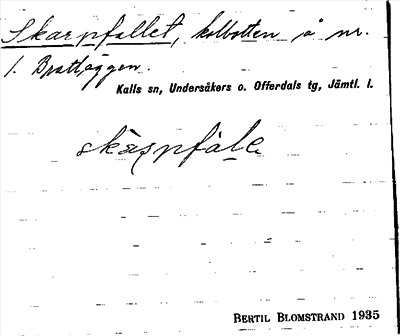 Skarpfallet, kolbotten å nr.
1. Brattäggen.
Kalls sn, Undersåkers o. Offerdals tg, Jämtl. l.
skarpfale
BERTIL BLOMSTRAND 1935